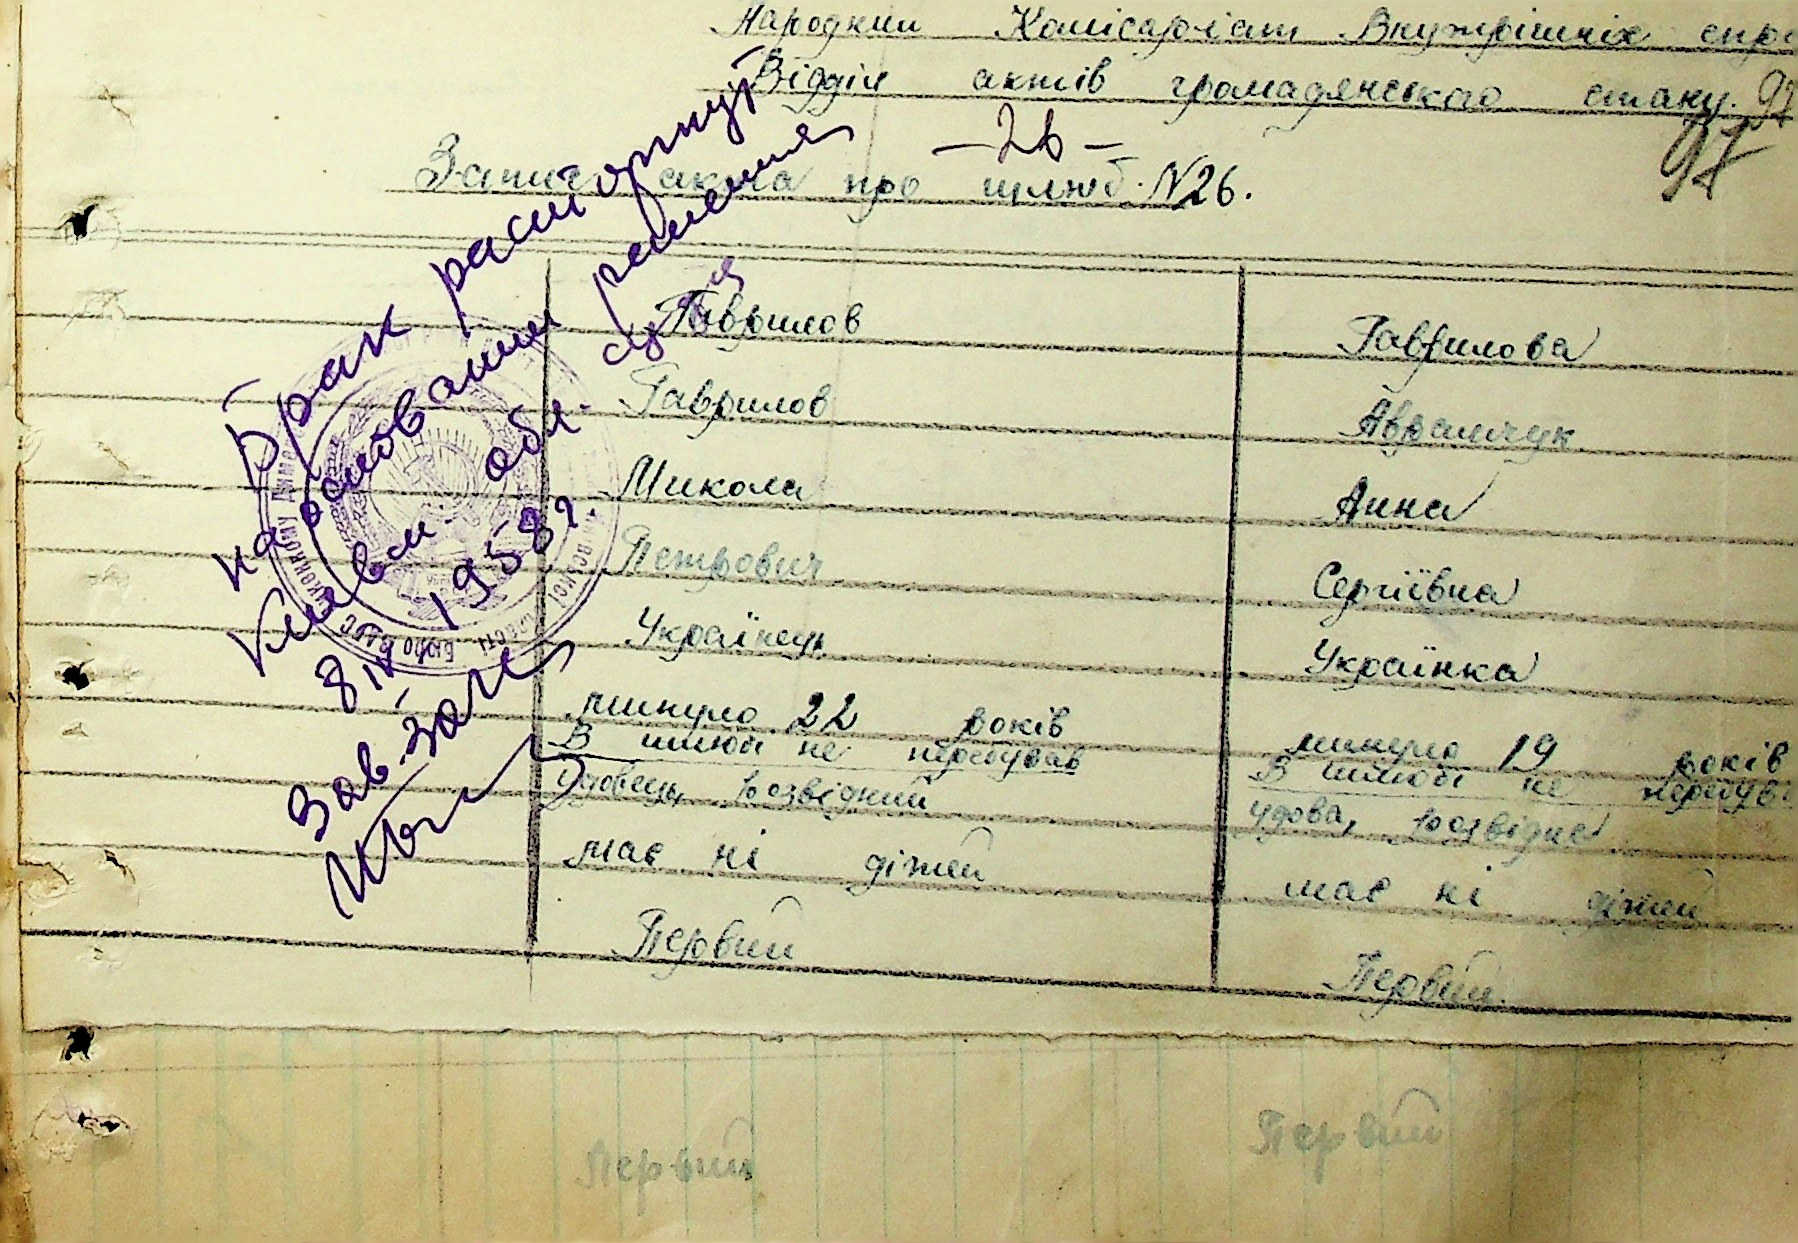 Народний Комісаріат Внутрішніх спра
Відділ актів громадянського стану. 97
97
— 26 —
Запис акта про шлюб. N26.
Гаврилов Гаврилова
Гаврилов Аврамчук
Микола Анна
Петрович Сергіївна
Українець Українка
минуло 22 років минуло 19 років
В шлюбі не перебував В шлюбі не перебув
удовець, розвідний удова, розвідне
має ні дітей має ні дітей
Первий Первий.
Первий Первий
Брак расторгнут
на основании решения
Киевск. обл. суда
8 IV 1958 г.
Зав. Загс